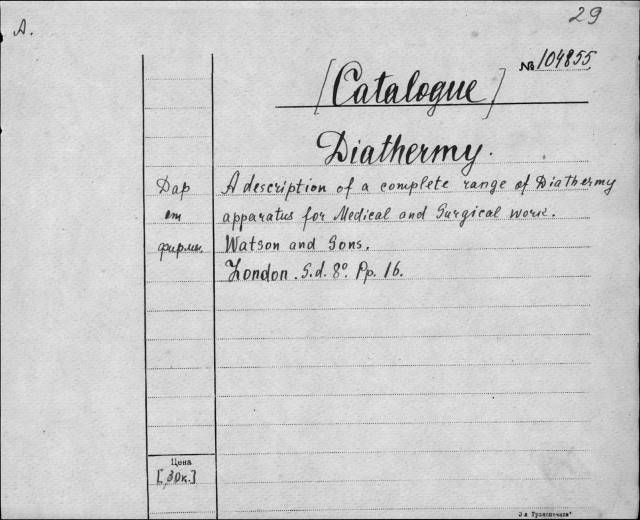 29
A.
№ 104855
[Catalogue]
Diathermy.
Дар A description of a complete range of Diathermy
от apparatus for Medical and Surgical work.
фирмы. Watson and Sons.
London. S.d. 8º. Pp. 16.
Цена
[30к.]